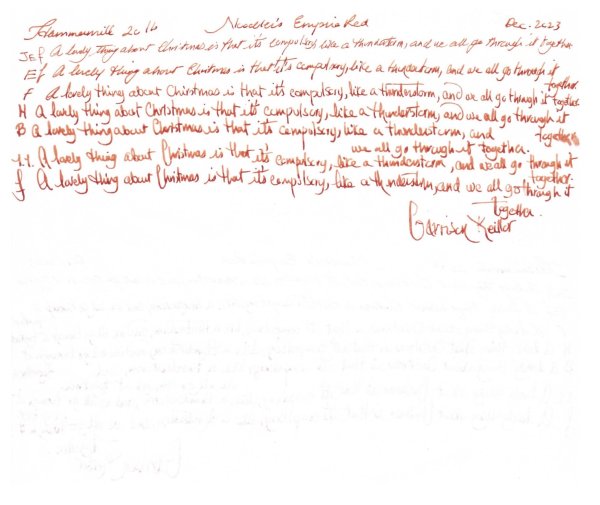 Hammermill 20lb Noodler's Empire Red Dec. 2023
JEF A lovely thing about Christmas is that it's compulsory, like a thunderstorm, and we all go through it together.
EF A lovely thing about Christmas is that it's compulsory, like a thunderstorm, and we all go through it
together.
F A lovely thing about Christmas is that it's compulsory, like a thunderstorm, and we all go through it together.
M A lovely thing about Christmas is that it's compulsory, like a thunderstorm, and we all go through it
together.
B A lovely thing about Christmas is that it's compulsory, like a thunderstorm, and
we all go through it together.
1.1. A lovely thing about Christmas is that it's compulsory, like a thunderstorm, and we all go through it
together.
f A lovely thing about Christmas is that it's compulsory, like a thunderstorm, and we all go through it
together.
Garrison Keillor